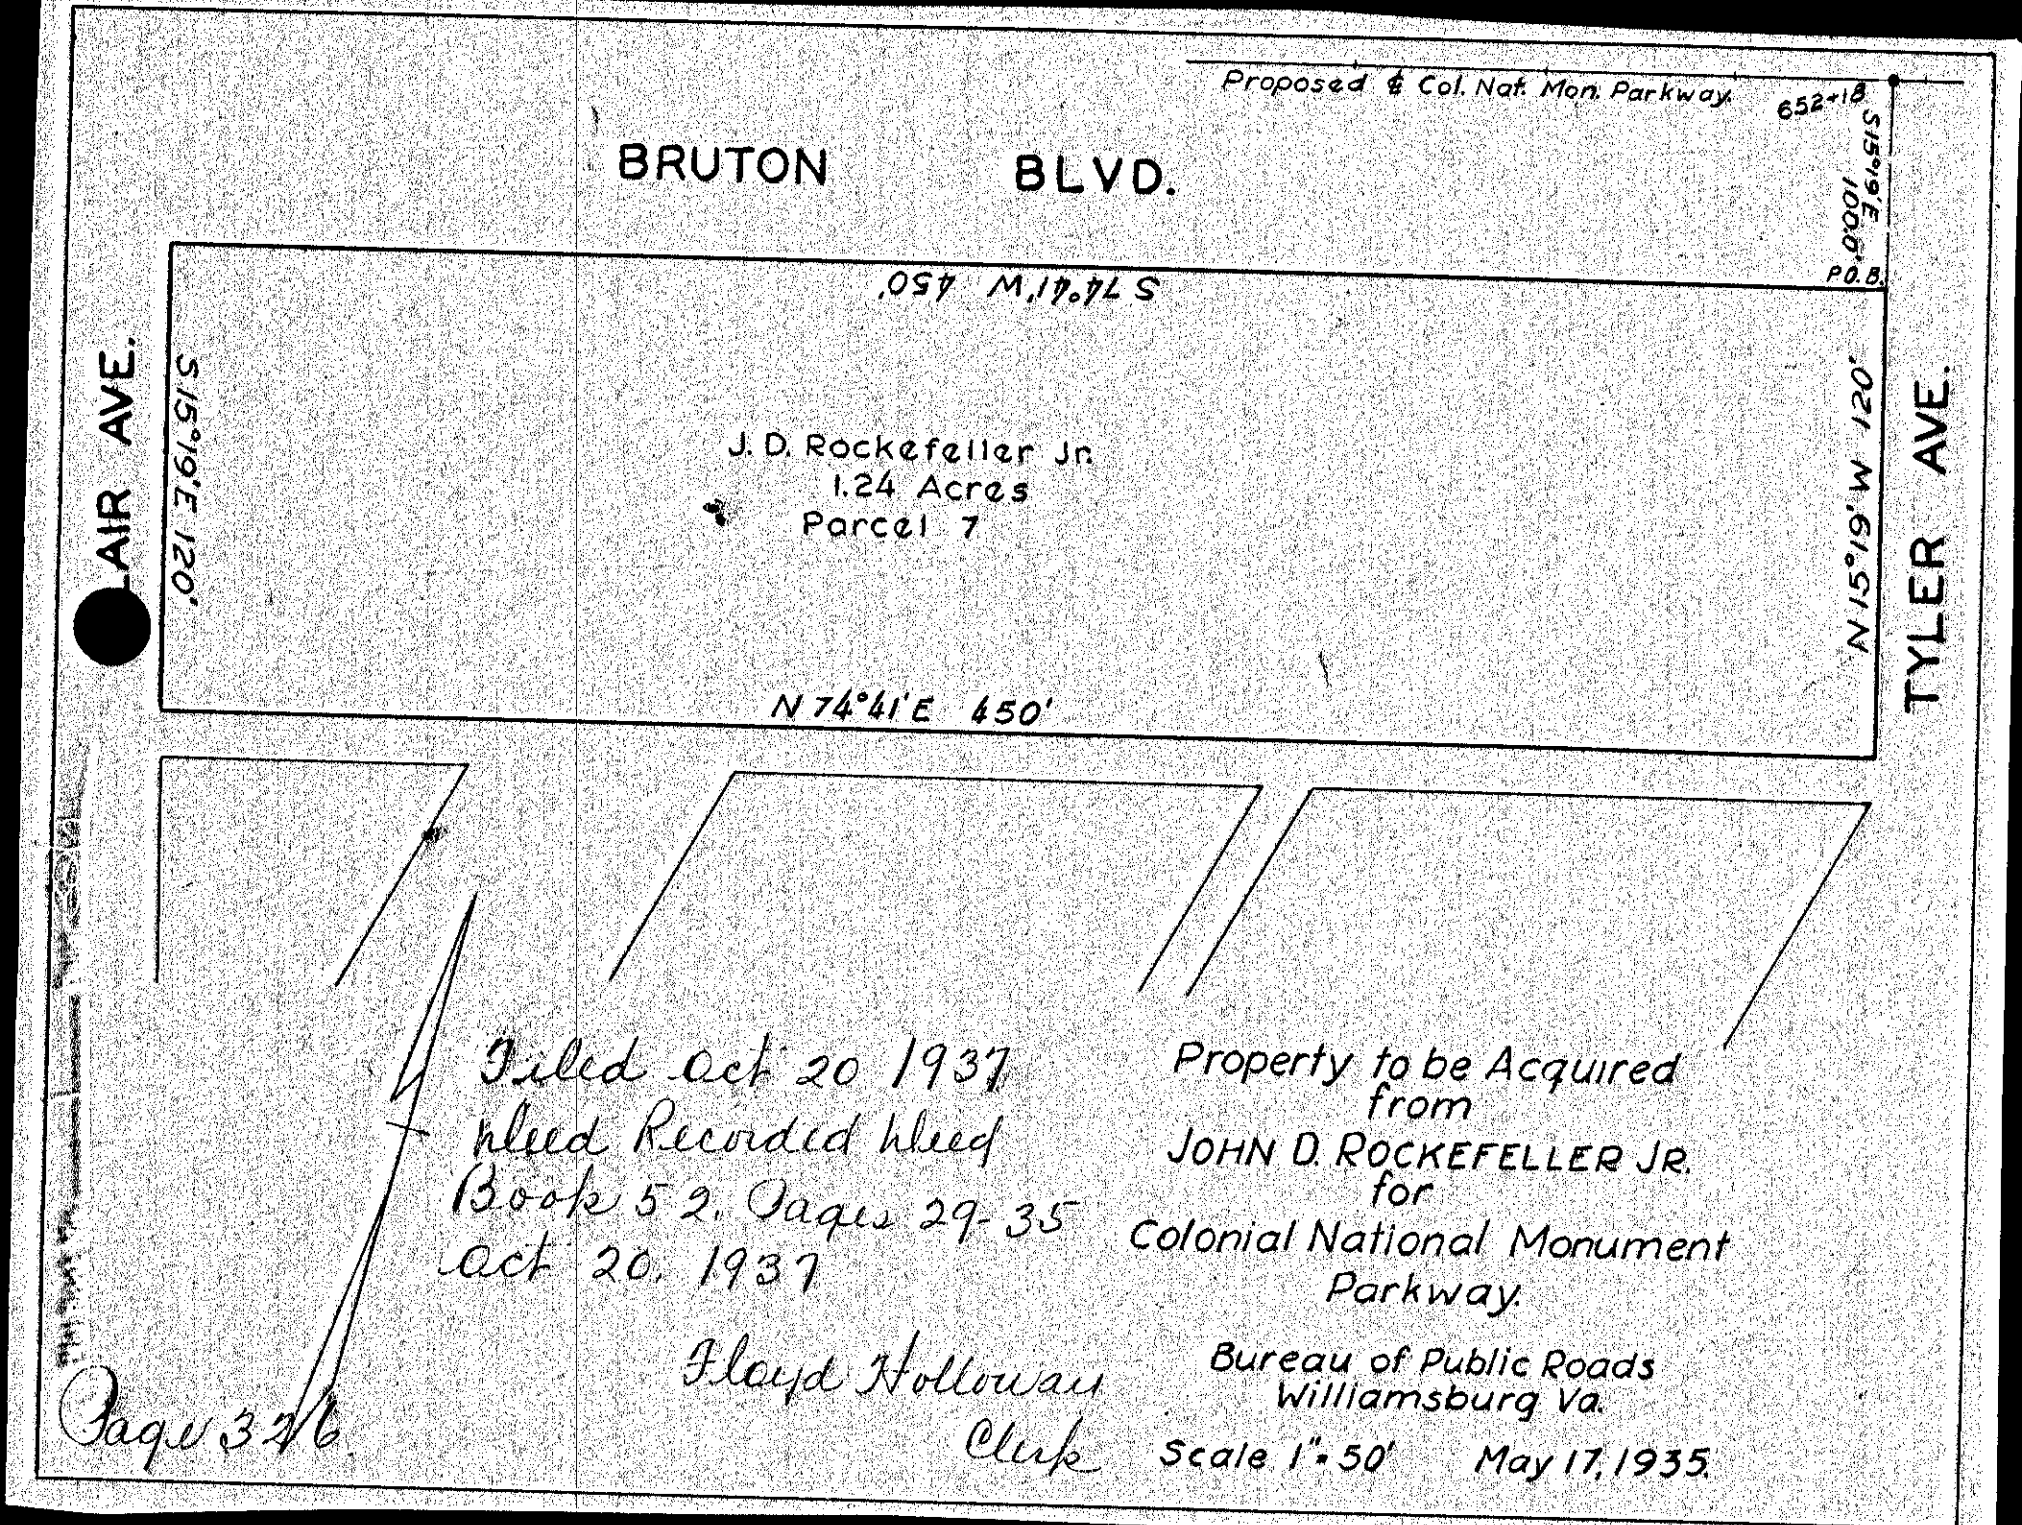 Proposed ℄ Col. Nat. Mon. Parkway.
652+18
S15°19'E
100.0'
P.O.B.
BRUTON BLVD.
S 74°41'W 450'
LAIR AVE.
S15°19'E 120'
J. D. Rockefeller Jr.
1.24 Acres
Parcel 7
N 15°19'W 120'
TYLER AVE.
N 74°41'E 450'
Filed Oct 20 1937
Deed Recorded Deed
Book 52. Pages 29-35
Oct 20. 1937
Floyd Holloway
Clerk
Page 326
Property to be Acquired
from
JOHN D. ROCKEFELLER JR.
for
Colonial National Monument
Parkway.
Bureau of Public Roads
Williamsburg Va.
Scale 1"=50' May 17, 1935.